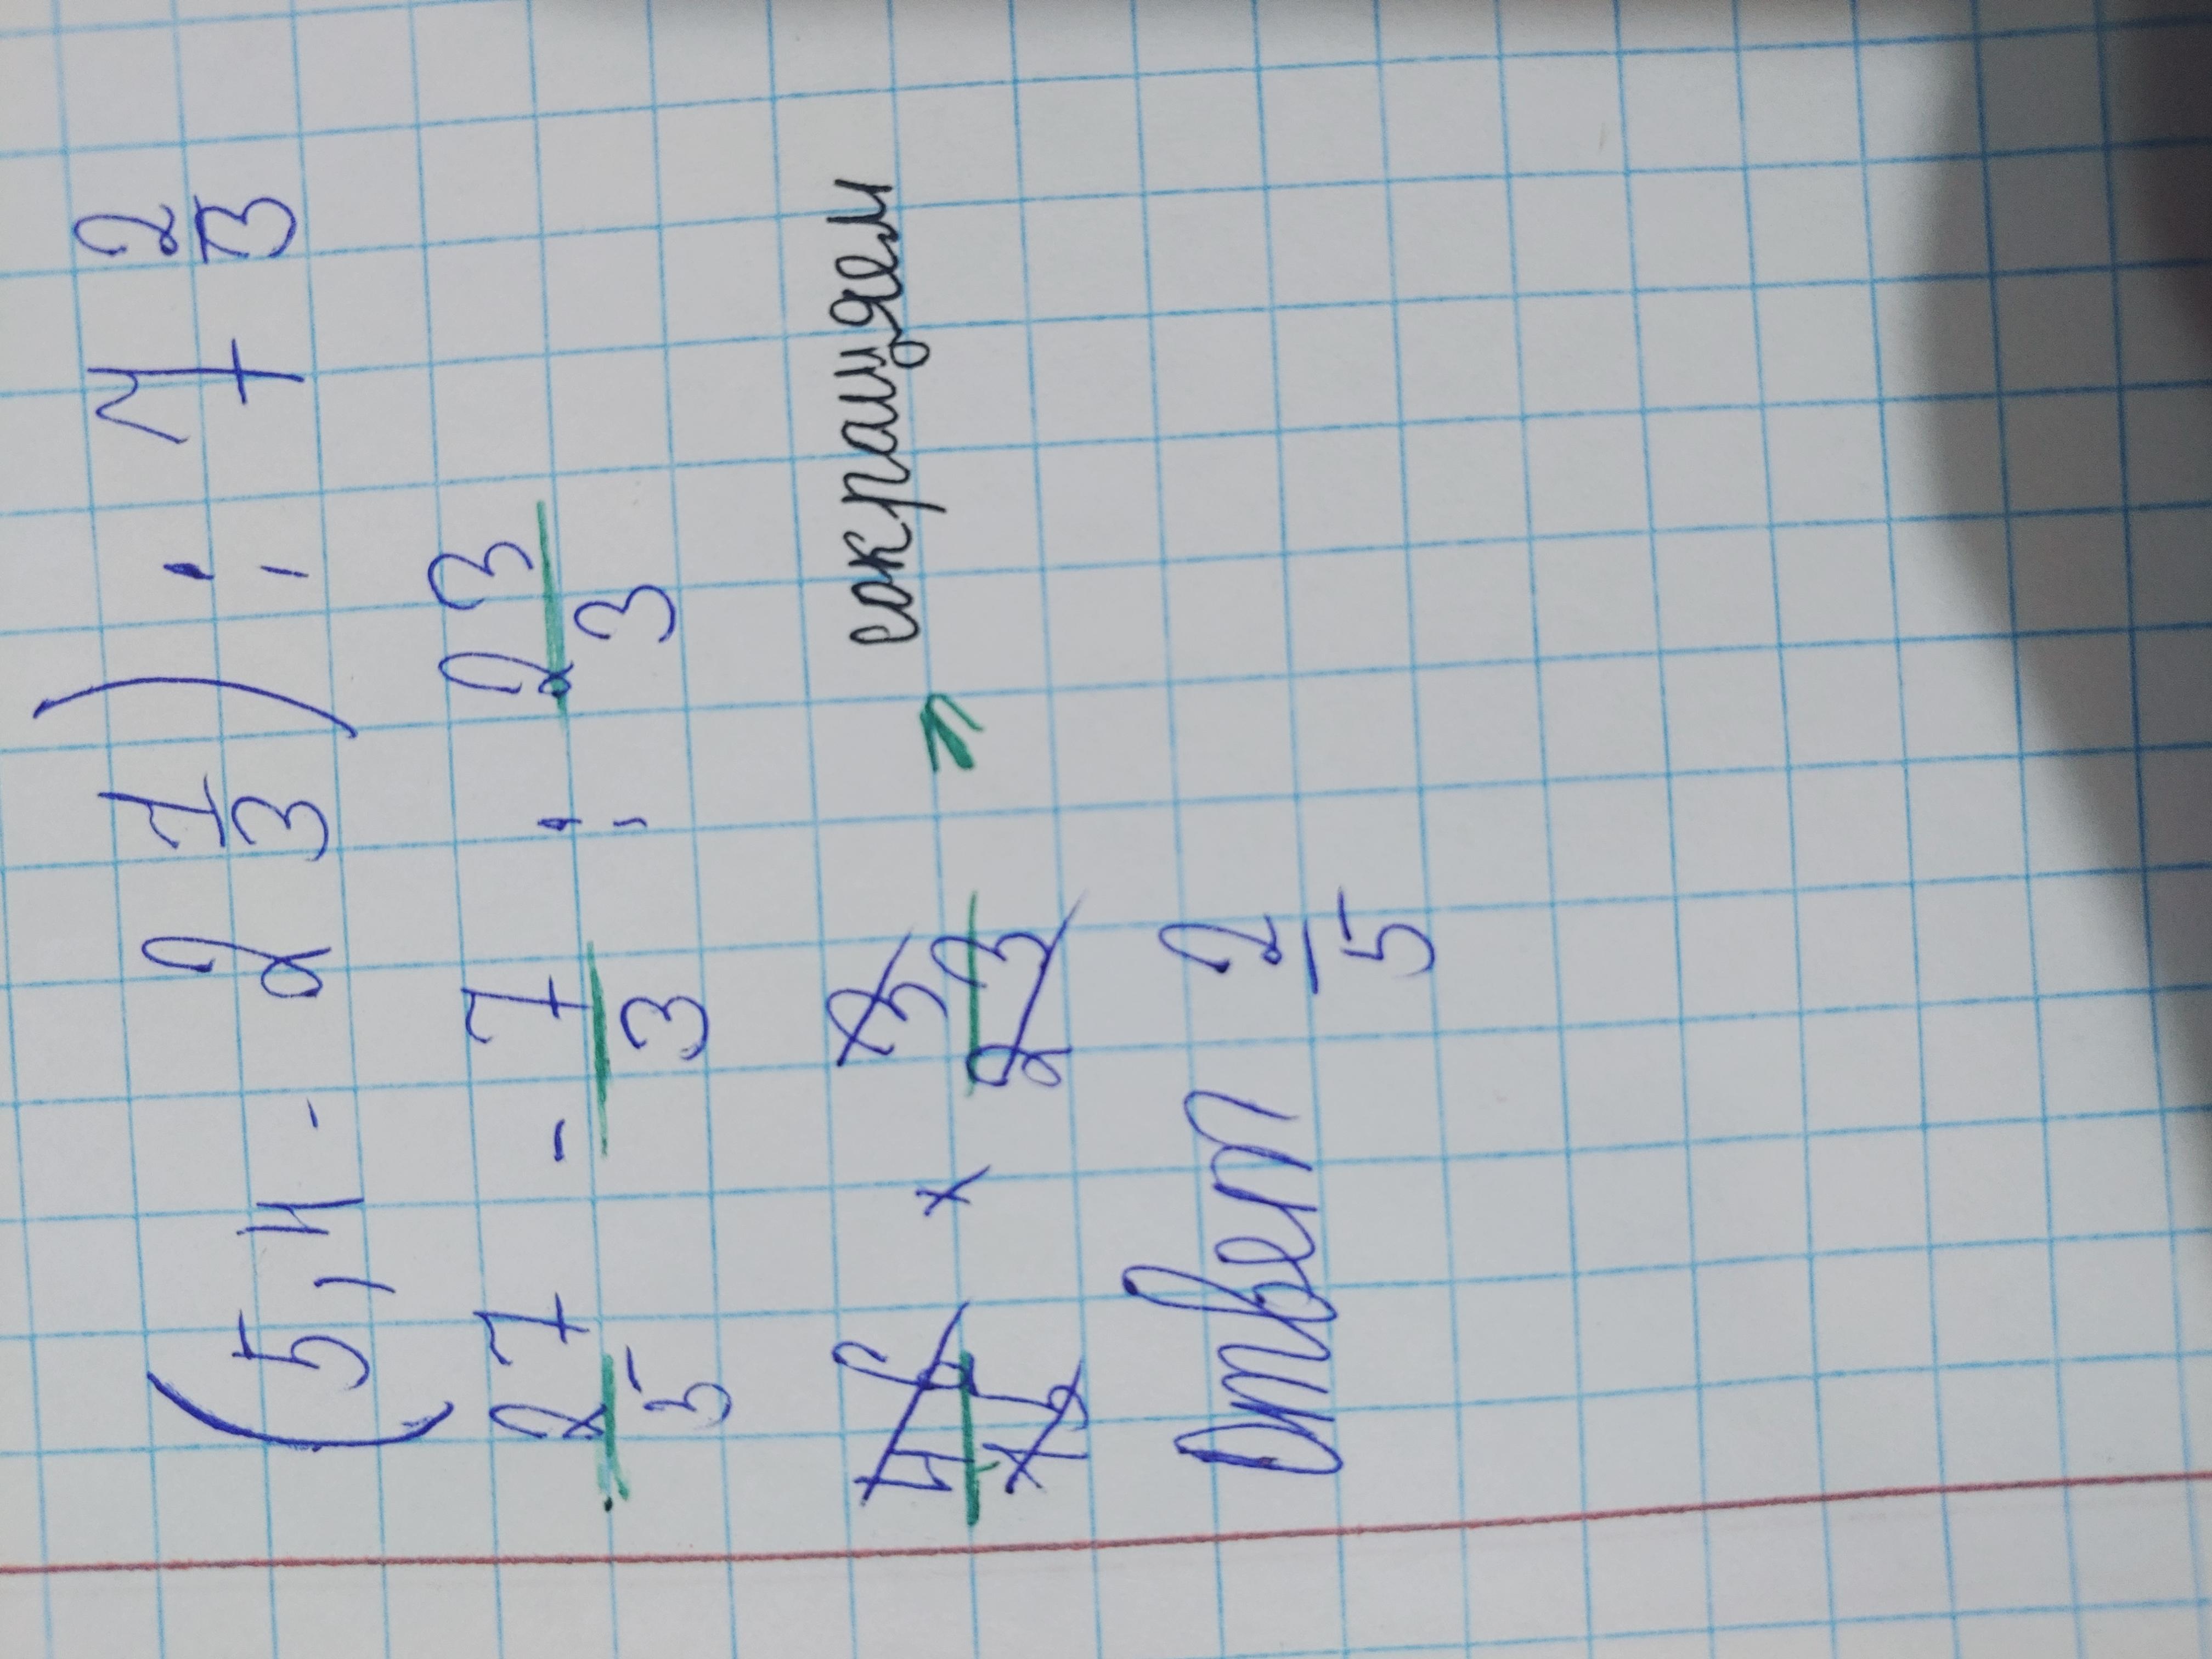 (5,4 - 2 1/3) : 7 2/3
27/5 - 7/3 : 23/3
46/15 × 3/23 → сокращаем
Ответ 2/5